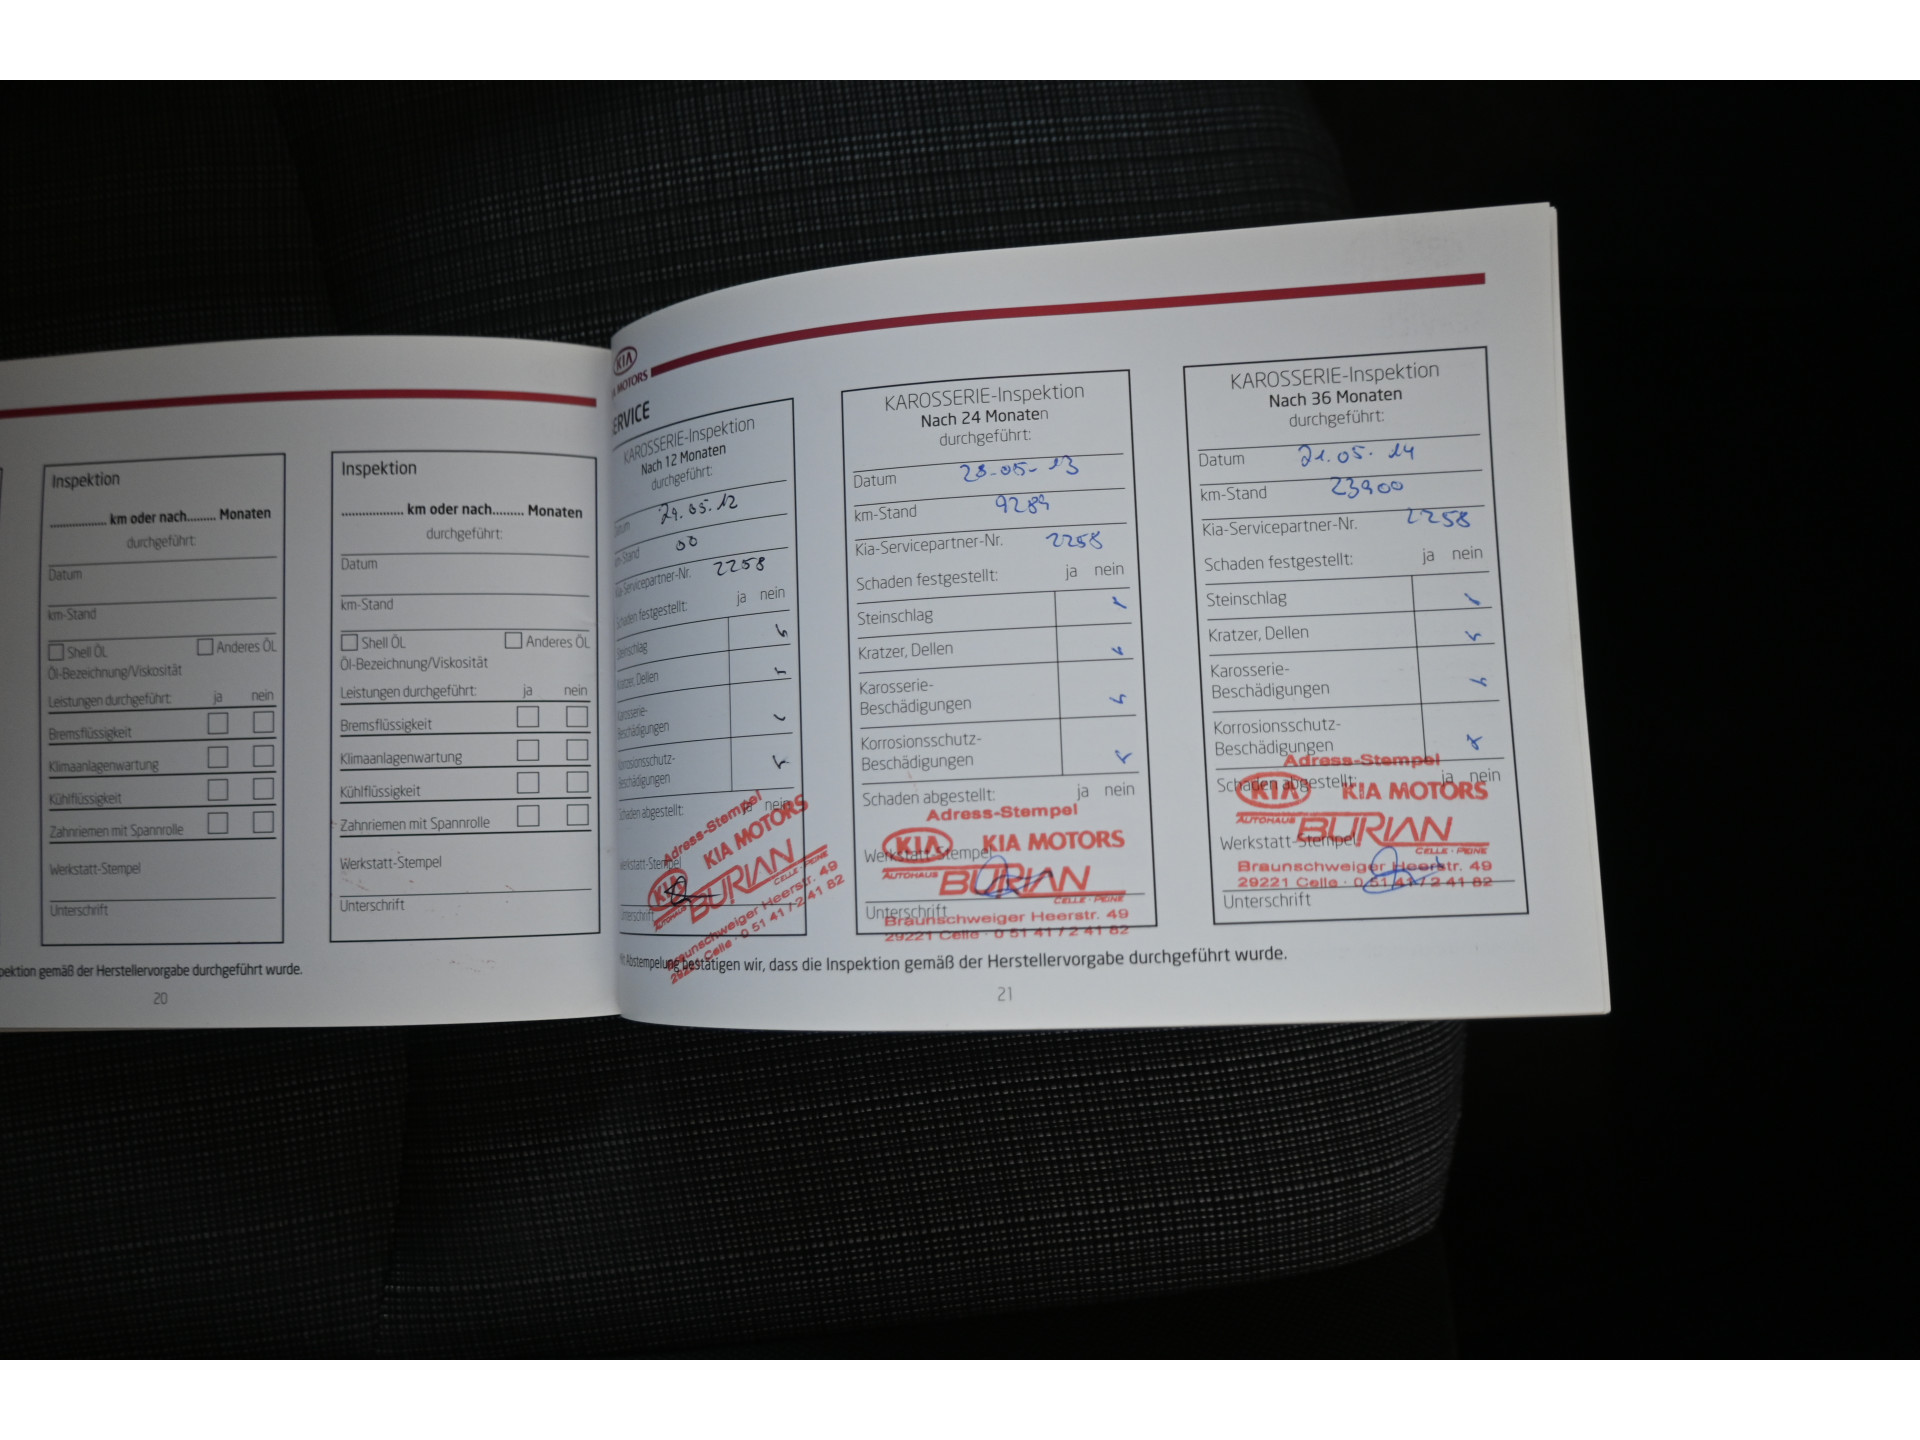 Inspektion
.................. km oder nach......... Monaten
durchgeführt:
Datum
km-Stand
Shell ÖL Anderes ÖL
Öl-Bezeichnung/Viskosität
Leistungen durchgeführt: ja nein
Bremsflüssigkeit
Klimaanlagenwartung
Kühlflüssigkeit
Zahnriemen mit Spannrolle
Werkstatt-Stempel
Unterschrift
Inspektion
.................. km oder nach......... Monaten
durchgeführt:
Datum
km-Stand
Shell ÖL Anderes ÖL
Öl-Bezeichnung/Viskosität
Leistungen durchgeführt: ja nein
Bremsflüssigkeit
Klimaanlagenwartung
Kühlflüssigkeit
Zahnriemen mit Spannrolle
Werkstatt-Stempel
Unterschrift
gemäß der Herstellervorgabe durchgeführt wurde.
20
KIA
MOTORS
KAROSSERIE-Inspektion
Nach 12 Monaten
durchgeführt:
Datum
km-Stand 00
Kia-Servicepartner-Nr. 2258
Schaden festgestellt: ja nein
Steinschlag
Kratzer, Dellen
Karosserie-
Beschädigungen
Korrosionsschutz-
Beschädigungen
Schaden abgestellt: ja nein
Adress-Stempel
KIA KIA MOTORS
Werkstatt-Stempel
AUTOHAUS BURIAN
CELLE - PEINE
Unterschrift
Braunschweiger Heerstr. 49
29221 Celle · 0 51 41 / 2 41 82
KAROSSERIE-Inspektion
Nach 24 Monaten
durchgeführt:
Datum 28-05-13
km-Stand 9289
Kia-Servicepartner-Nr. 2258
Schaden festgestellt: ja nein
Steinschlag
Kratzer, Dellen
Karosserie-
Beschädigungen
Korrosionsschutz-
Beschädigungen
Schaden abgestellt: ja nein
Adress-Stempel
KIA KIA MOTORS
Werkstatt-Stempel
AUTOHAUS BURIAN
CELLE - PEINE
Unterschrift
Braunschweiger Heerstr. 49
29221 Celle · 0 51 41 / 2 41 82
KAROSSERIE-Inspektion
Nach 36 Monaten
durchgeführt:
Datum 21.05.14
km-Stand 23900
Kia-Servicepartner-Nr. 2258
Schaden festgestellt: ja nein
Steinschlag
Kratzer, Dellen
Karosserie-
Beschädigungen
Korrosionsschutz-
Beschädigungen
Adress-Stempel
Schaden abgestellt: ja nein
KIA KIA MOTORS
AUTOHAUS BURIAN
Werkstatt-Stempel
CELLE - PEINE
Braunschweiger Heerstr. 49
29221 Celle · 0 51 41 / 2 41 82
Unterschrift
Abstempelung bestätigen wir, dass die Inspektion gemäß der Herstellervorgabe durchgeführt wurde.
21